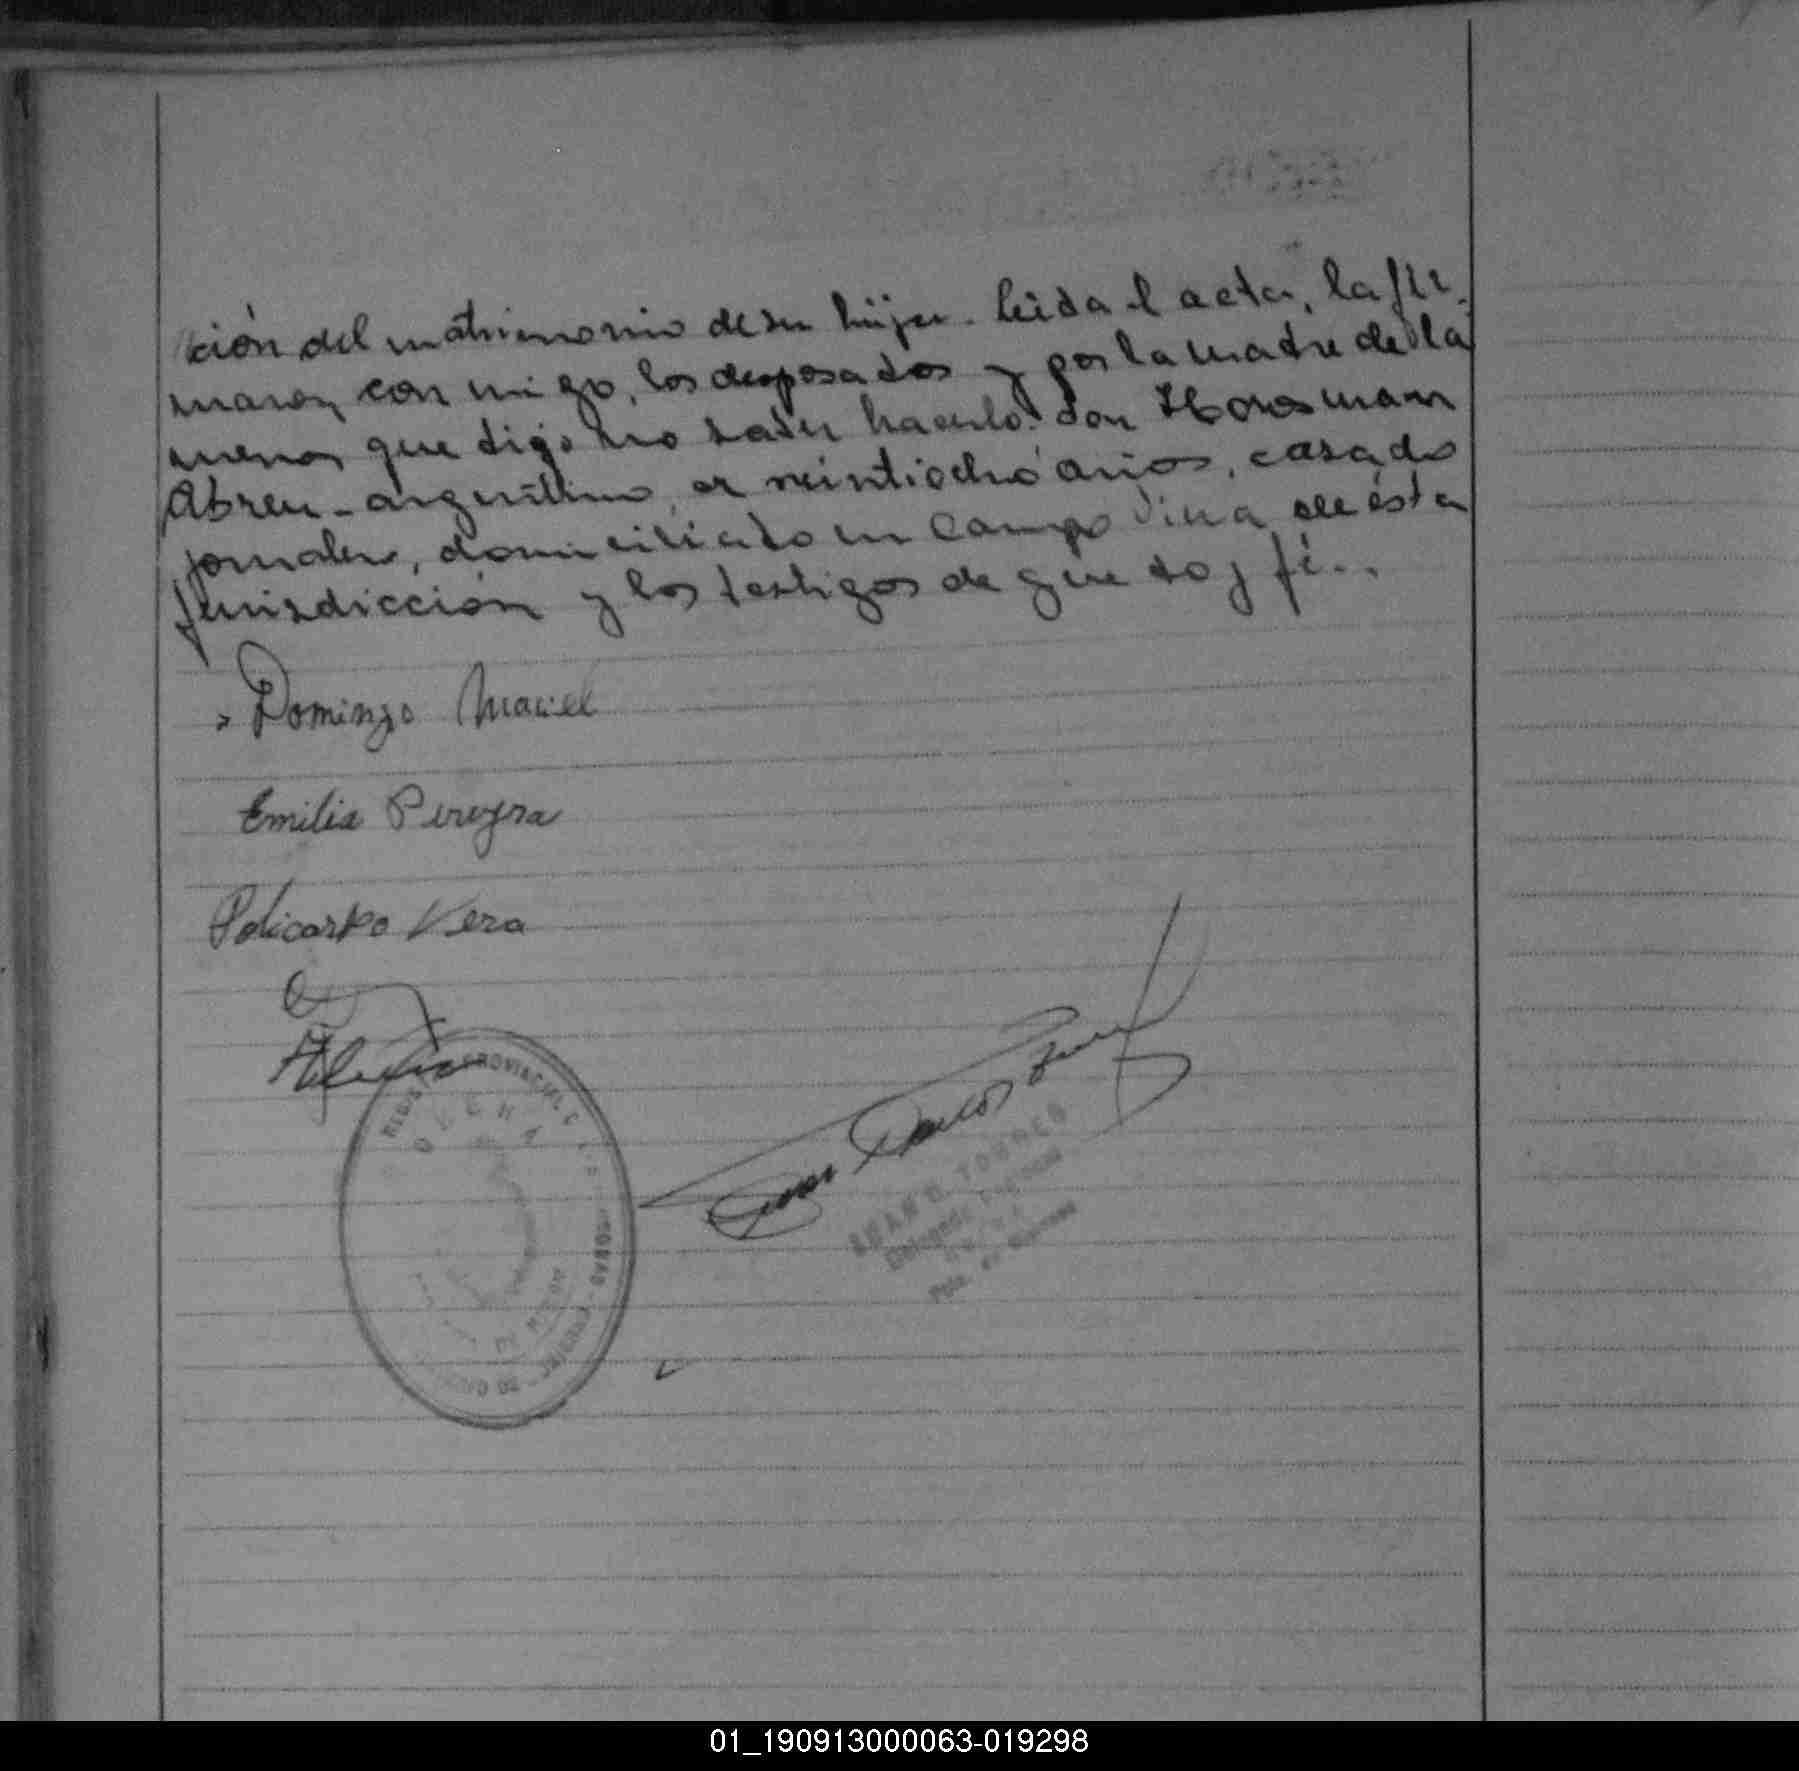 ción del matrimonio de su hija. Leida el acta, la fir
maron con migo, los desposados y por la madre de la
menor que dijo no saber hacerlo don Horosman
Abreu - argentino, de veintiocho años, casado
jornalero, domiciliado en Campo Vina de ésta
jurisdicción y los testigos de que doy fé...
Domingo Maciel
Emilia Pereyra
Policarpo Vera
JUAN C. TORRES
01_190913000063-019298